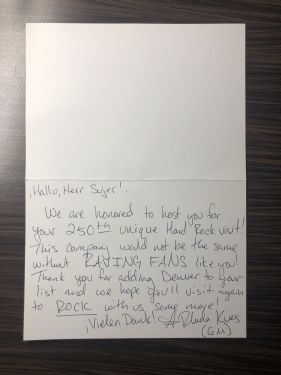 ¡Hallo, Herr Sujer! . .
We are honored to host you for
your 250th unique Hard Rock visit!
This company would not be the same
without RAVING FANS like you!
Thank you for adding Denver to your
list and we hope you'll visit again
to ROCK with us some more!
¡Vielen Dank!
(GM)